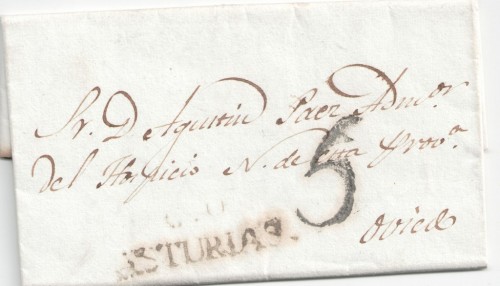 Sr. D Agustin Paez Admor.
del Hospicio N. de esta Prova.
5
Oviedo
ASTURIAS.